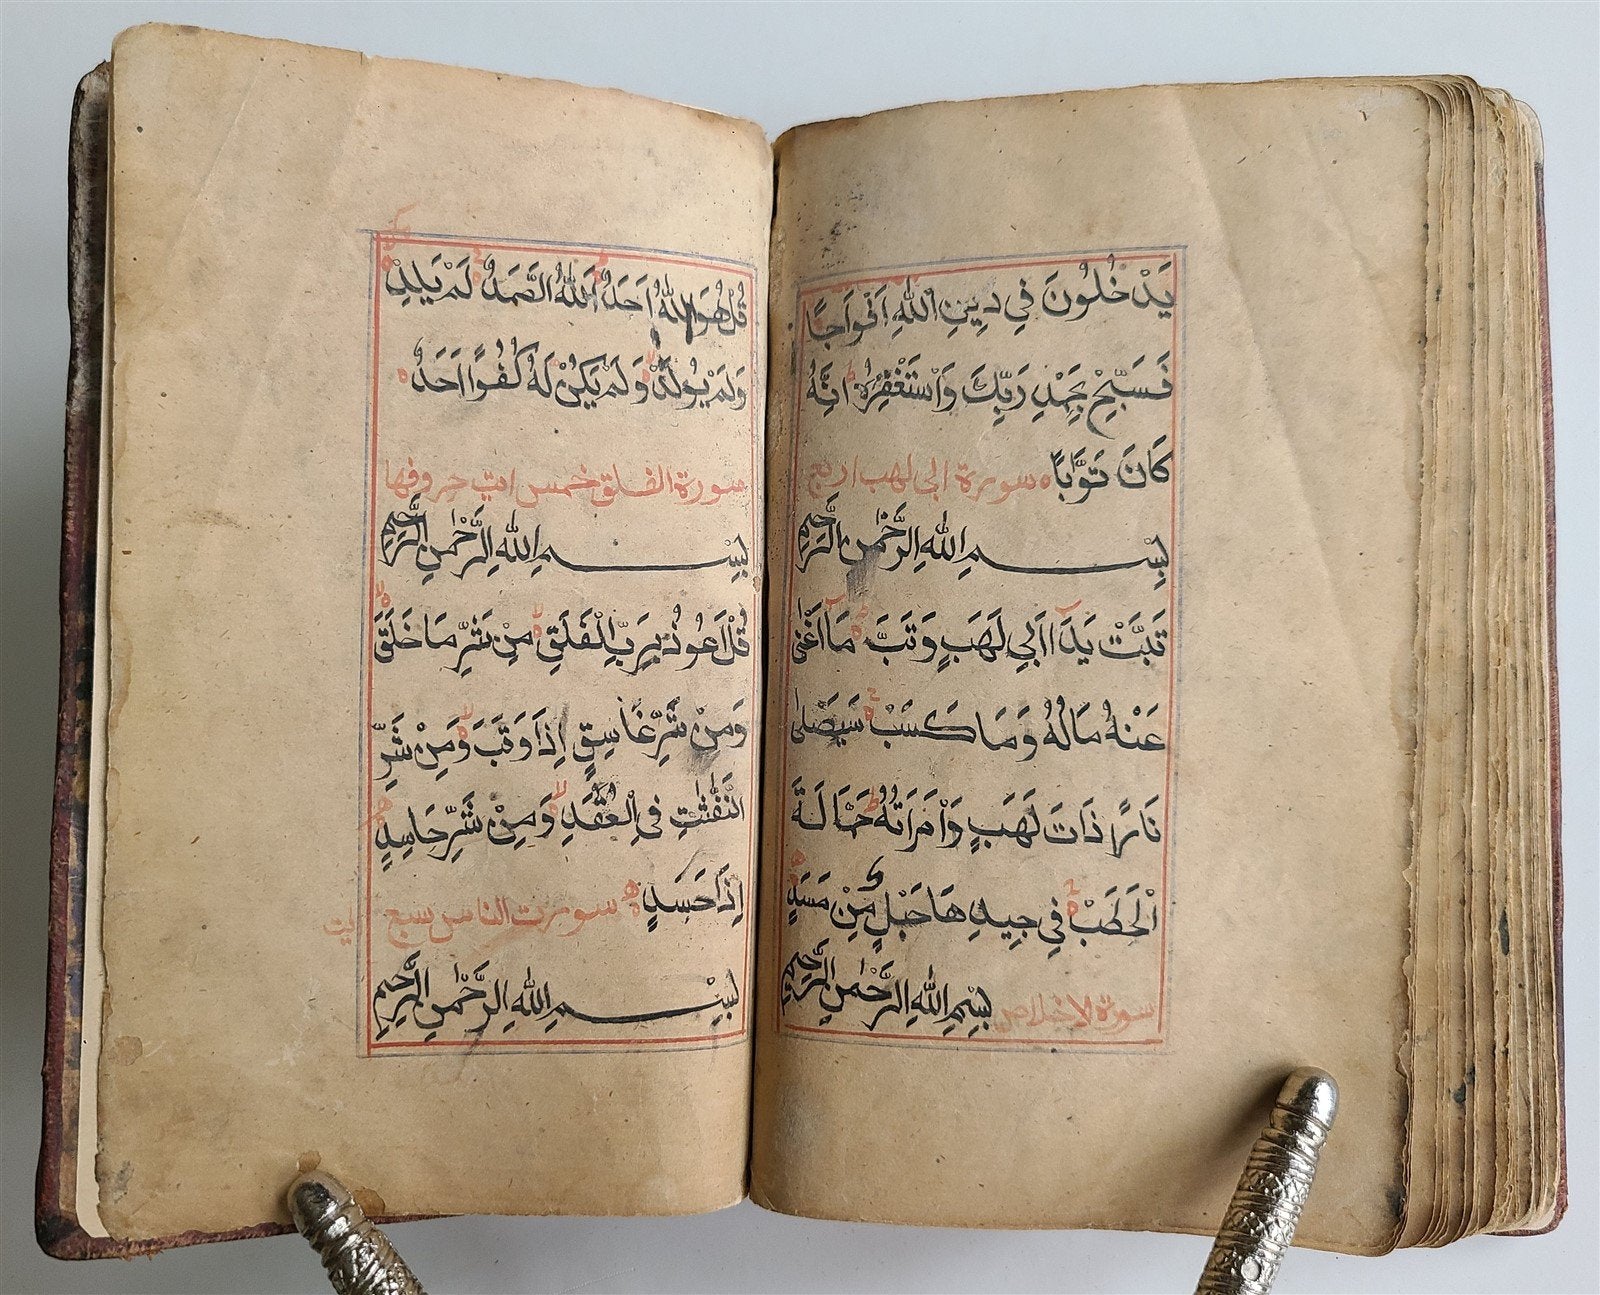 يَدْخُلُونَ فِي دِينِ اللّٰهِ اَفْوَاجًا
فَسَبِّحْ بِحَمْدِ رَبِّكَ وَاسْتَغْفِرْهُ اِنَّهُ
كَانَ تَوَّابًا سورة ابى لهب اربع
بِسْمِ اللّٰهِ الرَّحْمٰنِ الرَّحِيمِ
تَبَّتْ يَدَا اَبِي لَهَبٍ وَتَبَّ مَا اَغْنٰى
عَنْهُ مَالُهُ وَمَا كَسَبْ سَيَصْلٰى
نَارًا ذَاتَ لَهَبٍ وَاْمْرَاَتُهُ حَمَّالَةَ
الْحَطَبْ فِي جِيدِهَا حَبْلٌ مِنْ مَسَدٍ
سورة الاخلاص بِسْمِ اللّٰهِ الرَّحْمٰنِ الرَّحِيمِ
قُلْ هُوَ اللّٰهُ اَحَدٌ اَللّٰهُ الصَّمَدُ لَمْ يَلِدْ
وَلَمْ يُولَدْ وَلَمْ يَكُنْ لَهُ كُفُوًا اَحَدٌ
سورة الفلق خمس ايت حروفها
بِسْمِ اللّٰهِ الرَّحْمٰنِ الرَّحِيمِ
قُلْ اَعُوذُ بِرَبِّ الْفَلَقِ مِنْ شَرِّ مَا خَلَقَ
وَمِنْ شَرِّ غَاسِقٍ اِذَا وَقَبَ وَمِنْ شَرِّ
النَّفّٰثٰتِ فِي الْعُقَدِ وَمِنْ شَرِّ حَاسِدٍ
اِذَا حَسَدٍ سورت الناس سبع ايت
بِسْمِ اللّٰهِ الرَّحْمٰنِ الرَّحِيمِ